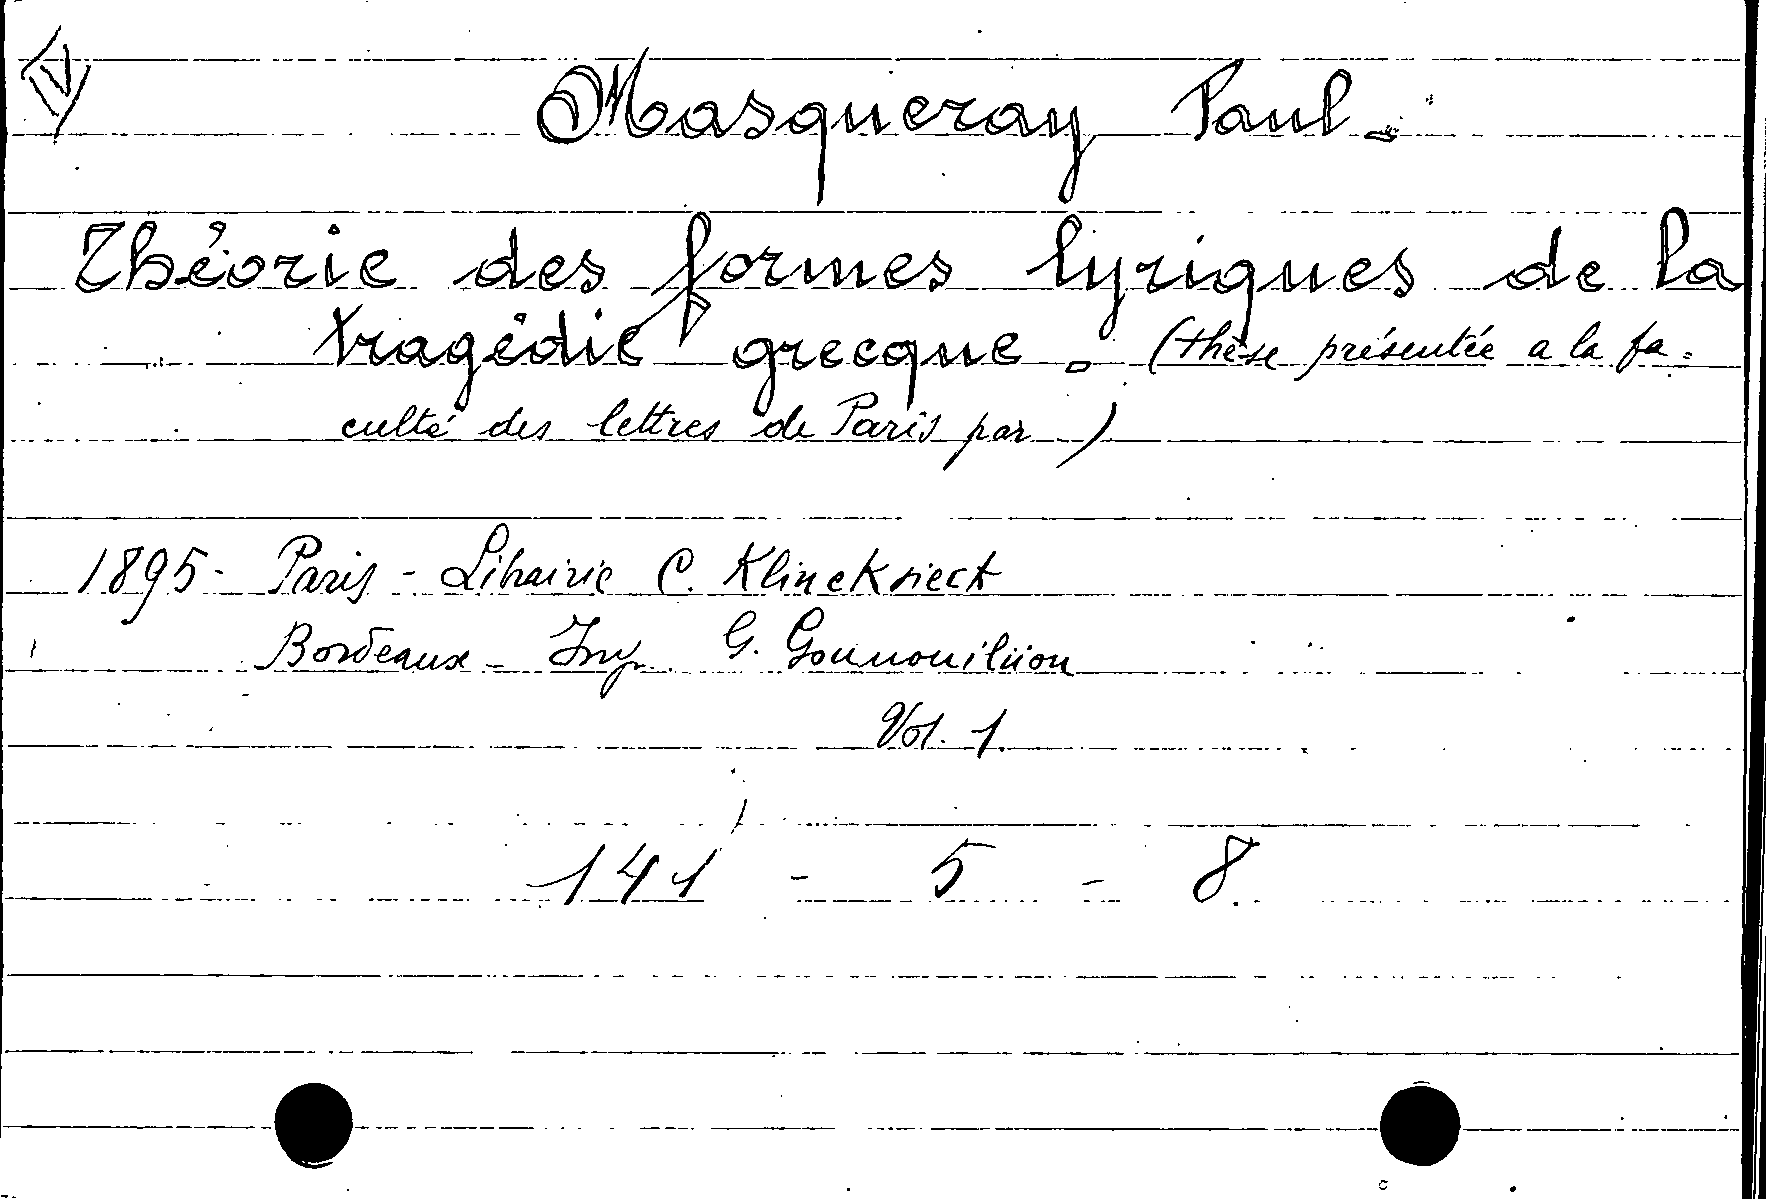 IV
Masqueray Paul.
Théorie des formes lyriques de la
tragédie grecque. (thèse présentée a la fa=
culté des lettres de Paris par)
1895- Paris - Libairie C. Klincksieck
Bordeaux - Imp. G. Gounouilion
Vol. 1.
141 - 5 - 8.